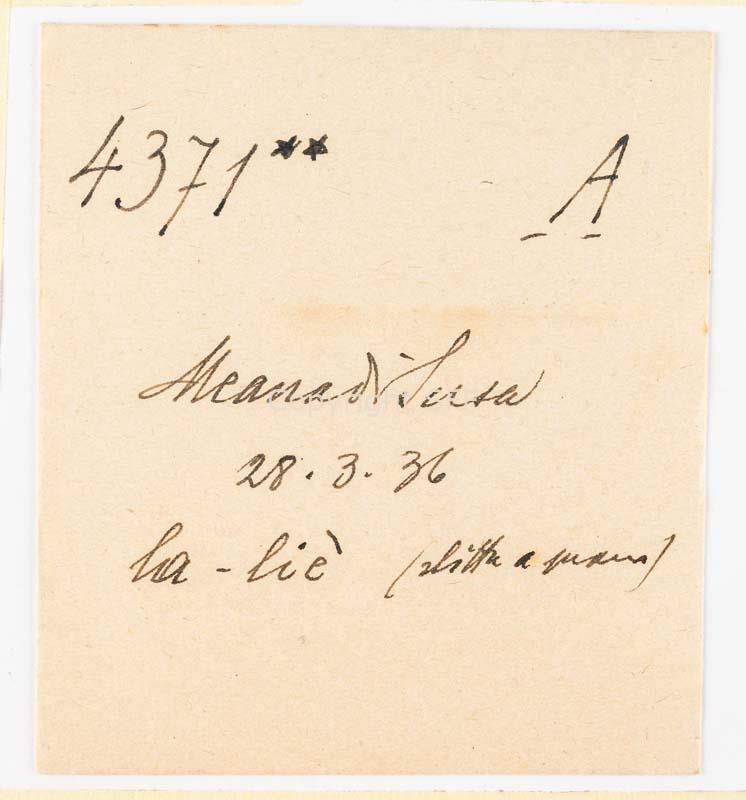 4371** A
Meana di Susa
28.3.36
la-liè (slitta a mano)